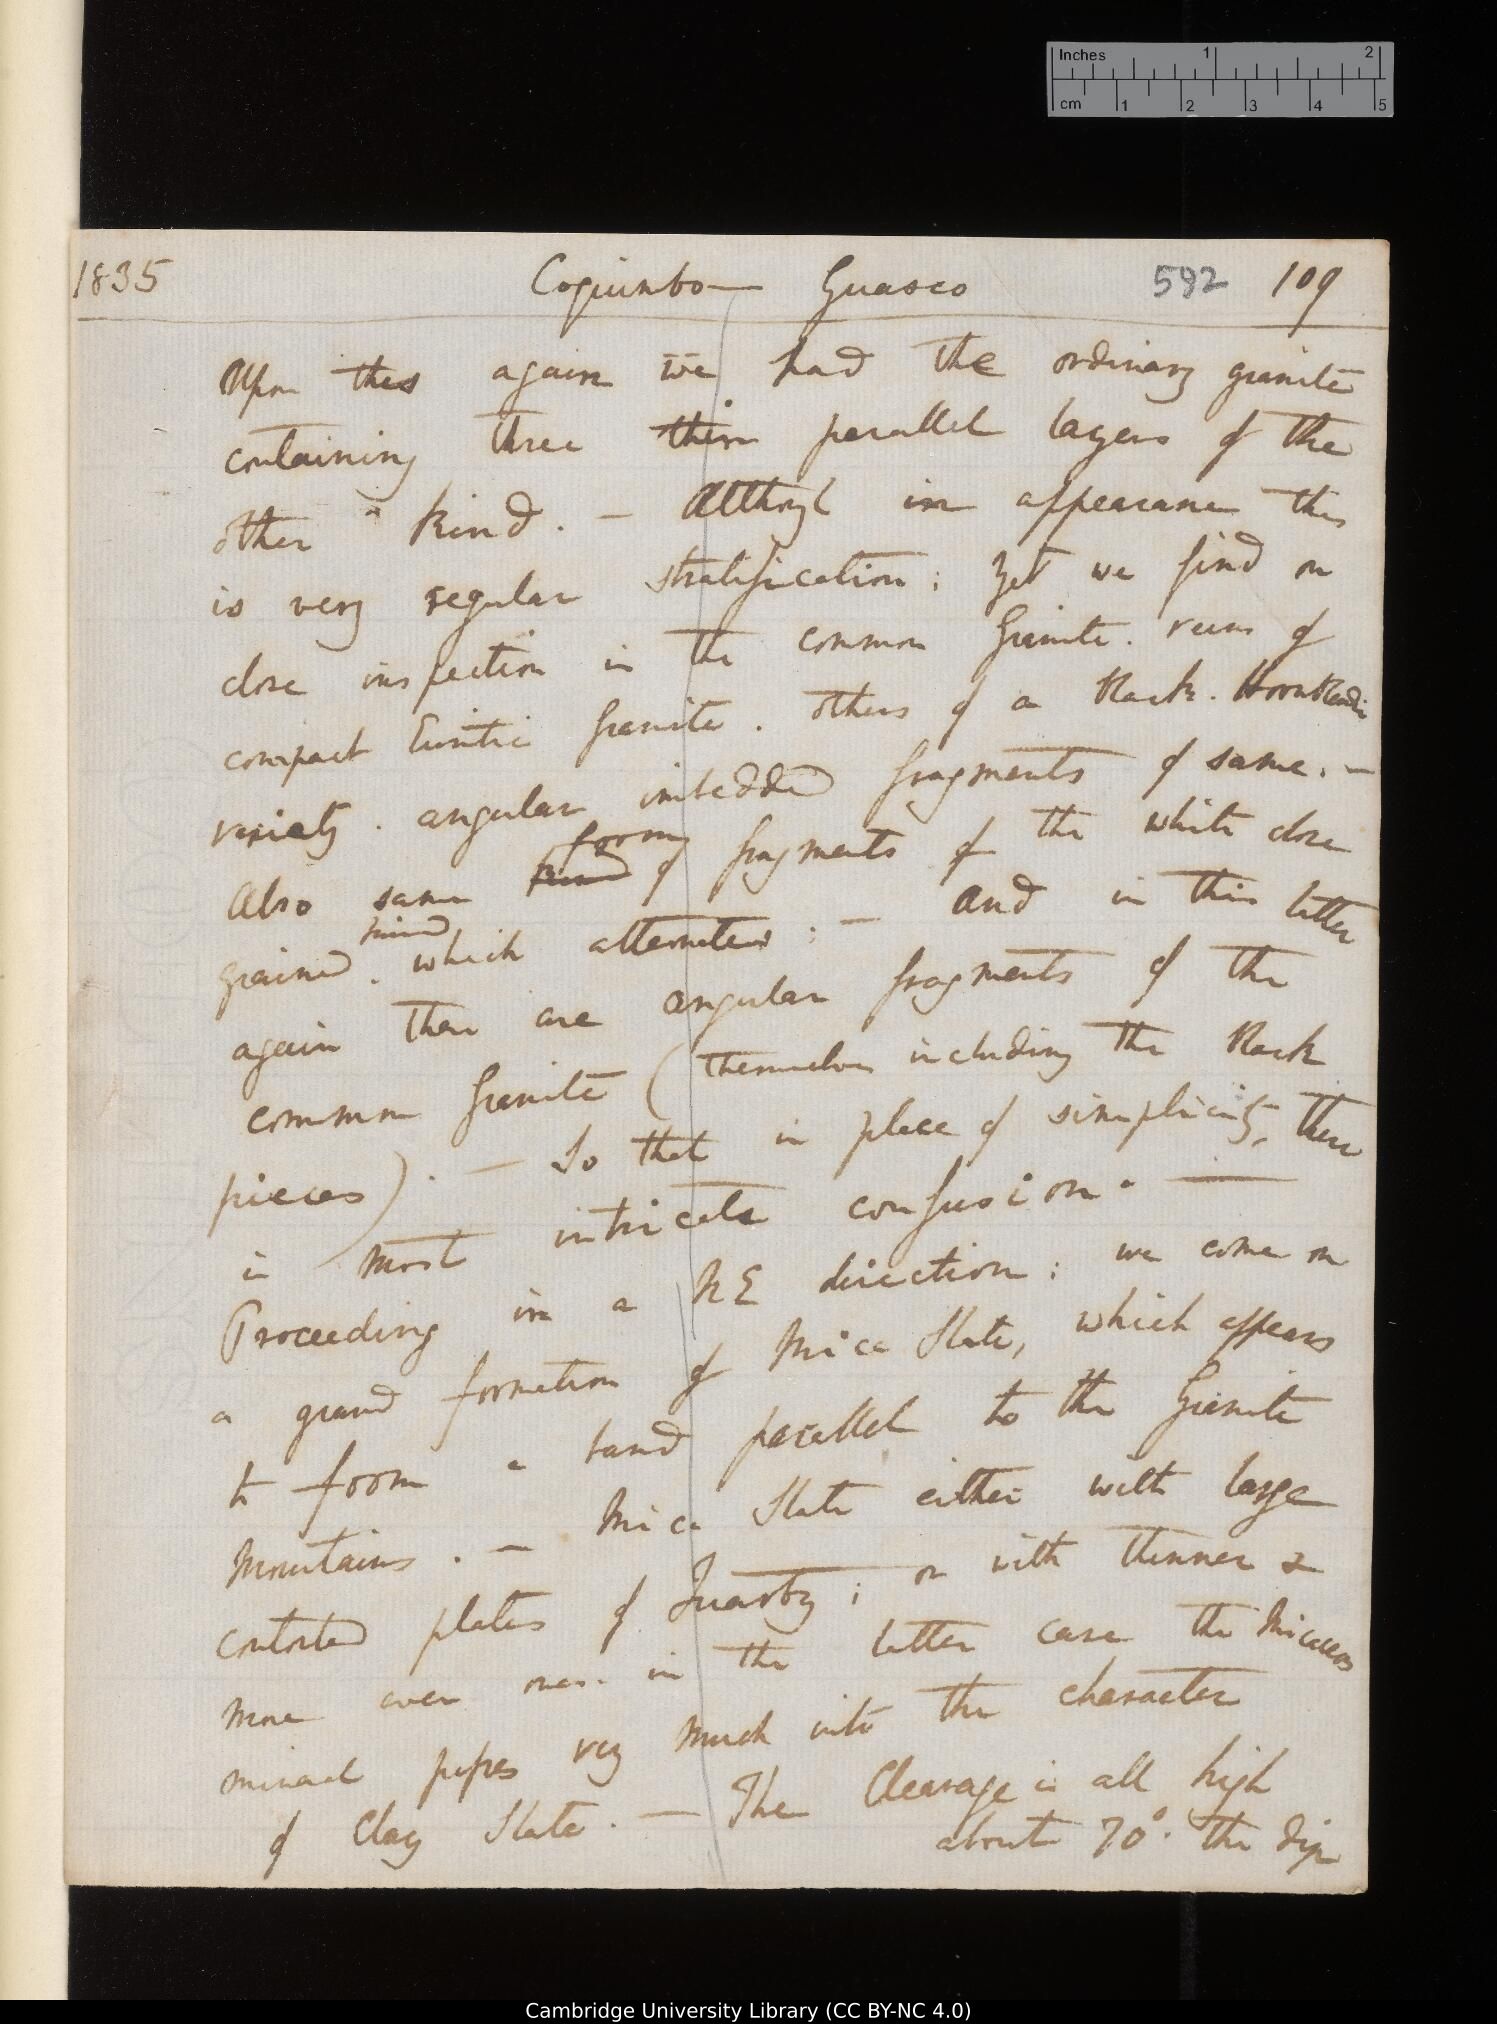 Inches 1 2
cm 1 2 3 4 5
1835 Coquimbo — Guasco 592 109
Upon this again we had the ordinary granite
containing three thin parallel layers of the
other kind. — Although in appearance this
is very regular stratification; yet we find on
close inspection in the common Granite. veins of
compact Euritic Granite. others of a black. Hornblendic
variety. angular imbedded fragments of same. —
forming
Also same kind of fragments of the white close
kind
grained. which alternates; — and in this latter
again there are angular fragments of the
common Granite (themselves including the black
pieces). — So that in place of simplicity, there
is most intricate confusion. —
Proceeding in a NE direction; we come on
a grand formation of Mica Slate, which appears
to form a band parallel to the Granite
Mountains. — Mica Slate either with large
contorted plates of Quartz; or with thinner &
more even ones. in the latter case the Micaceous
mineral passes very much into the character
of Clay Slate. — The Cleavage is all high
about 70°. the dip
Cambridge University Library (CC BY-NC 4.0)